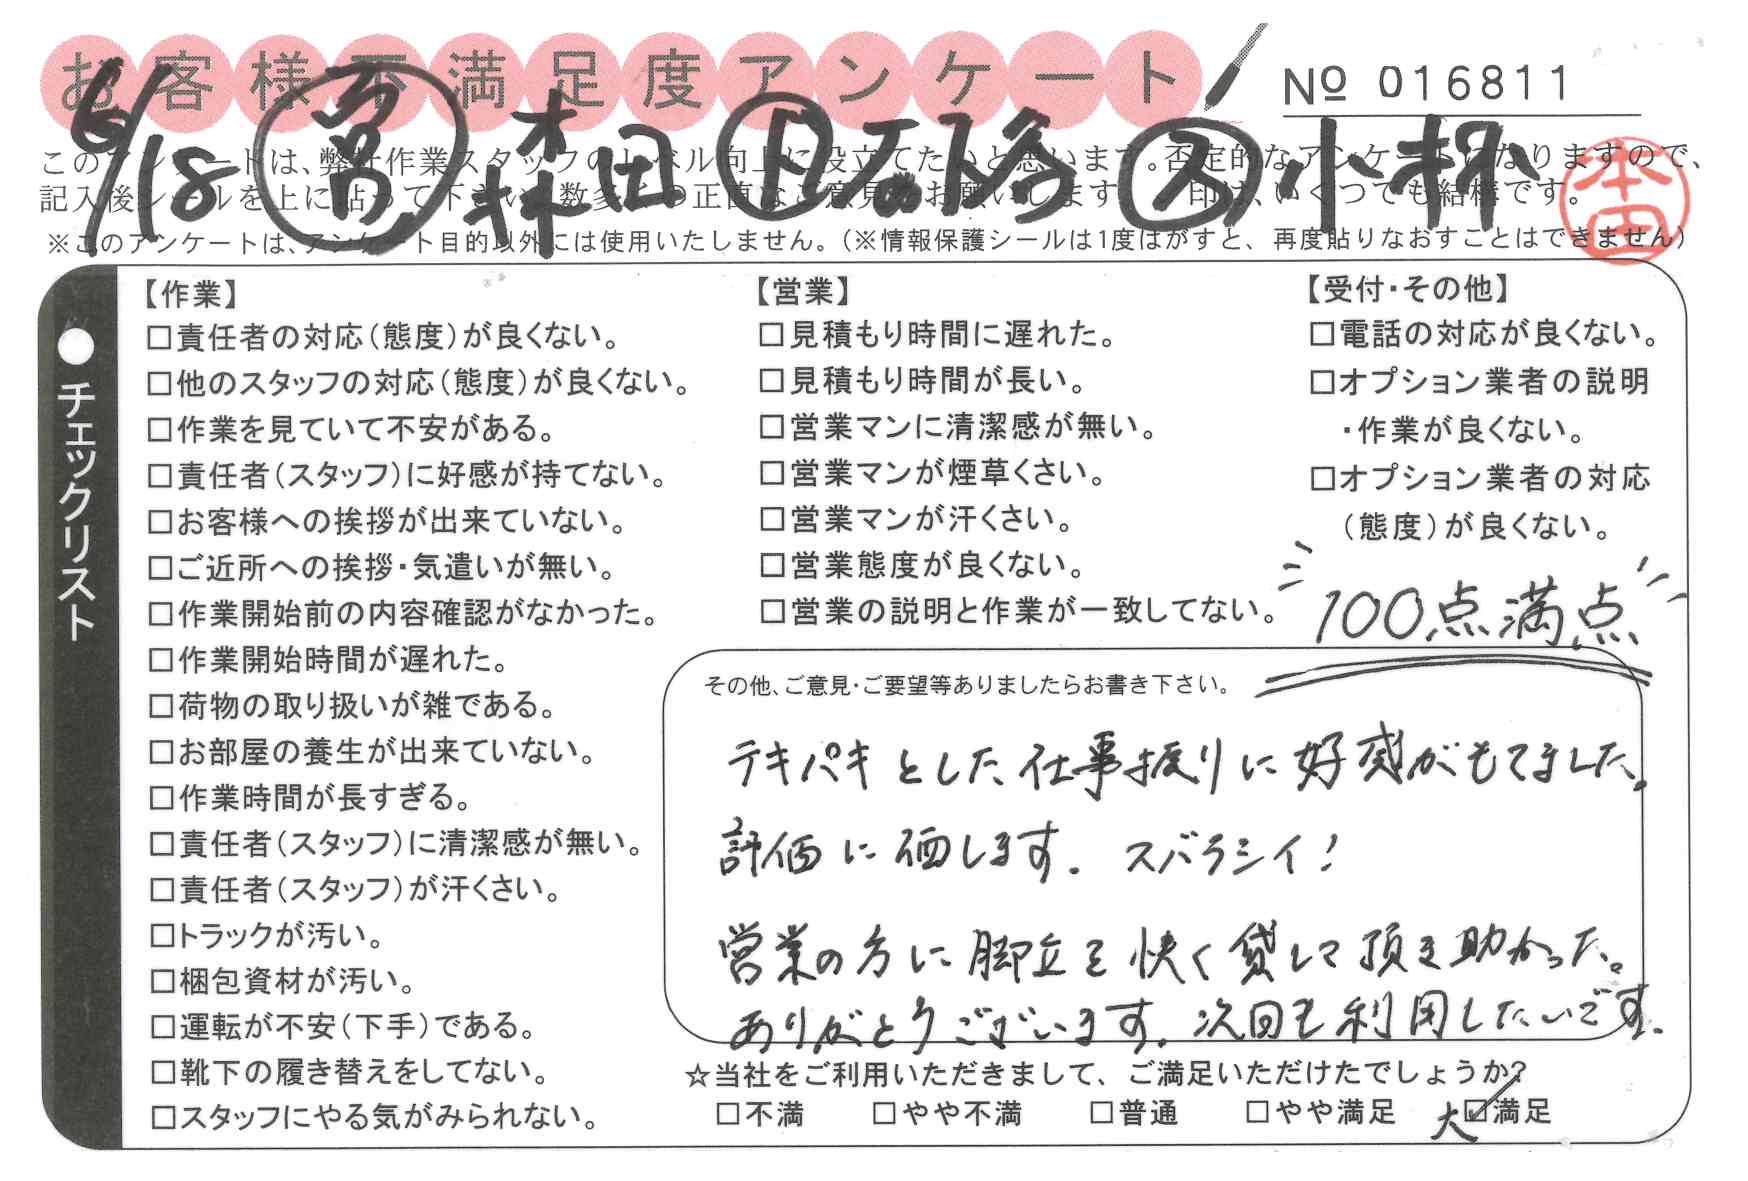 お客様不満足度アンケート
№ 016811
6/18 営 森田 ド 石 ス 小
本田
このアンケートは、弊社作業スタッフのレベル向上に役立てたいと思います。否定的なアンケートになりますので、
記入後シールを上に貼って下さい。数多くの正直なご意見をお願いします。 印は、いくつでも結構です。
※このアンケートは、アンケート目的以外には使用いたしません。(※情報保護シールは1度はがすと、再度貼りなおすことはできません)
●チェックリスト
【作業】
□責任者の対応(態度)が良くない。
□他のスタッフの対応(態度)が良くない。
□作業を見ていて不安がある。
□責任者(スタッフ)に好感が持てない。
□お客様への挨拶が出来ていない。
□ご近所への挨拶・気遣いが無い。
□作業開始前の内容確認がなかった。
□作業開始時間が遅れた。
□荷物の取り扱いが雑である。
□お部屋の養生が出来ていない。
□作業時間が長すぎる。
□責任者(スタッフ)に清潔感が無い。
□責任者(スタッフ)が汗くさい。
□トラックが汚い。
□梱包資材が汚い。
□運転が不安(下手)である。
□靴下の履き替えをしてない。
□スタッフにやる気がみられない。
【営業】
□見積もり時間に遅れた。
□見積もり時間が長い。
□営業マンに清潔感が無い。
□営業マンが煙草くさい。
□営業マンが汗くさい。
□営業態度が良くない。
□営業の説明と作業が一致してない。
【受付・その他】
□電話の対応が良くない。
□オプション業者の説明
・作業が良くない。
□オプション業者の対応
(態度)が良くない。
100点満点
その他、ご意見・ご要望等ありましたらお書き下さい。
テキパキとした仕事振りに好感がもてました。
評価に価します。スバラシイ!
営業の方に脚立を快く貸して頂き助かった。
ありがとうございます。次回も利用したいです。
☆当社をご利用いただきまして、ご満足いただけたでしょうか?
□不満 □やや不満 □普通 □やや満足 大☑満足